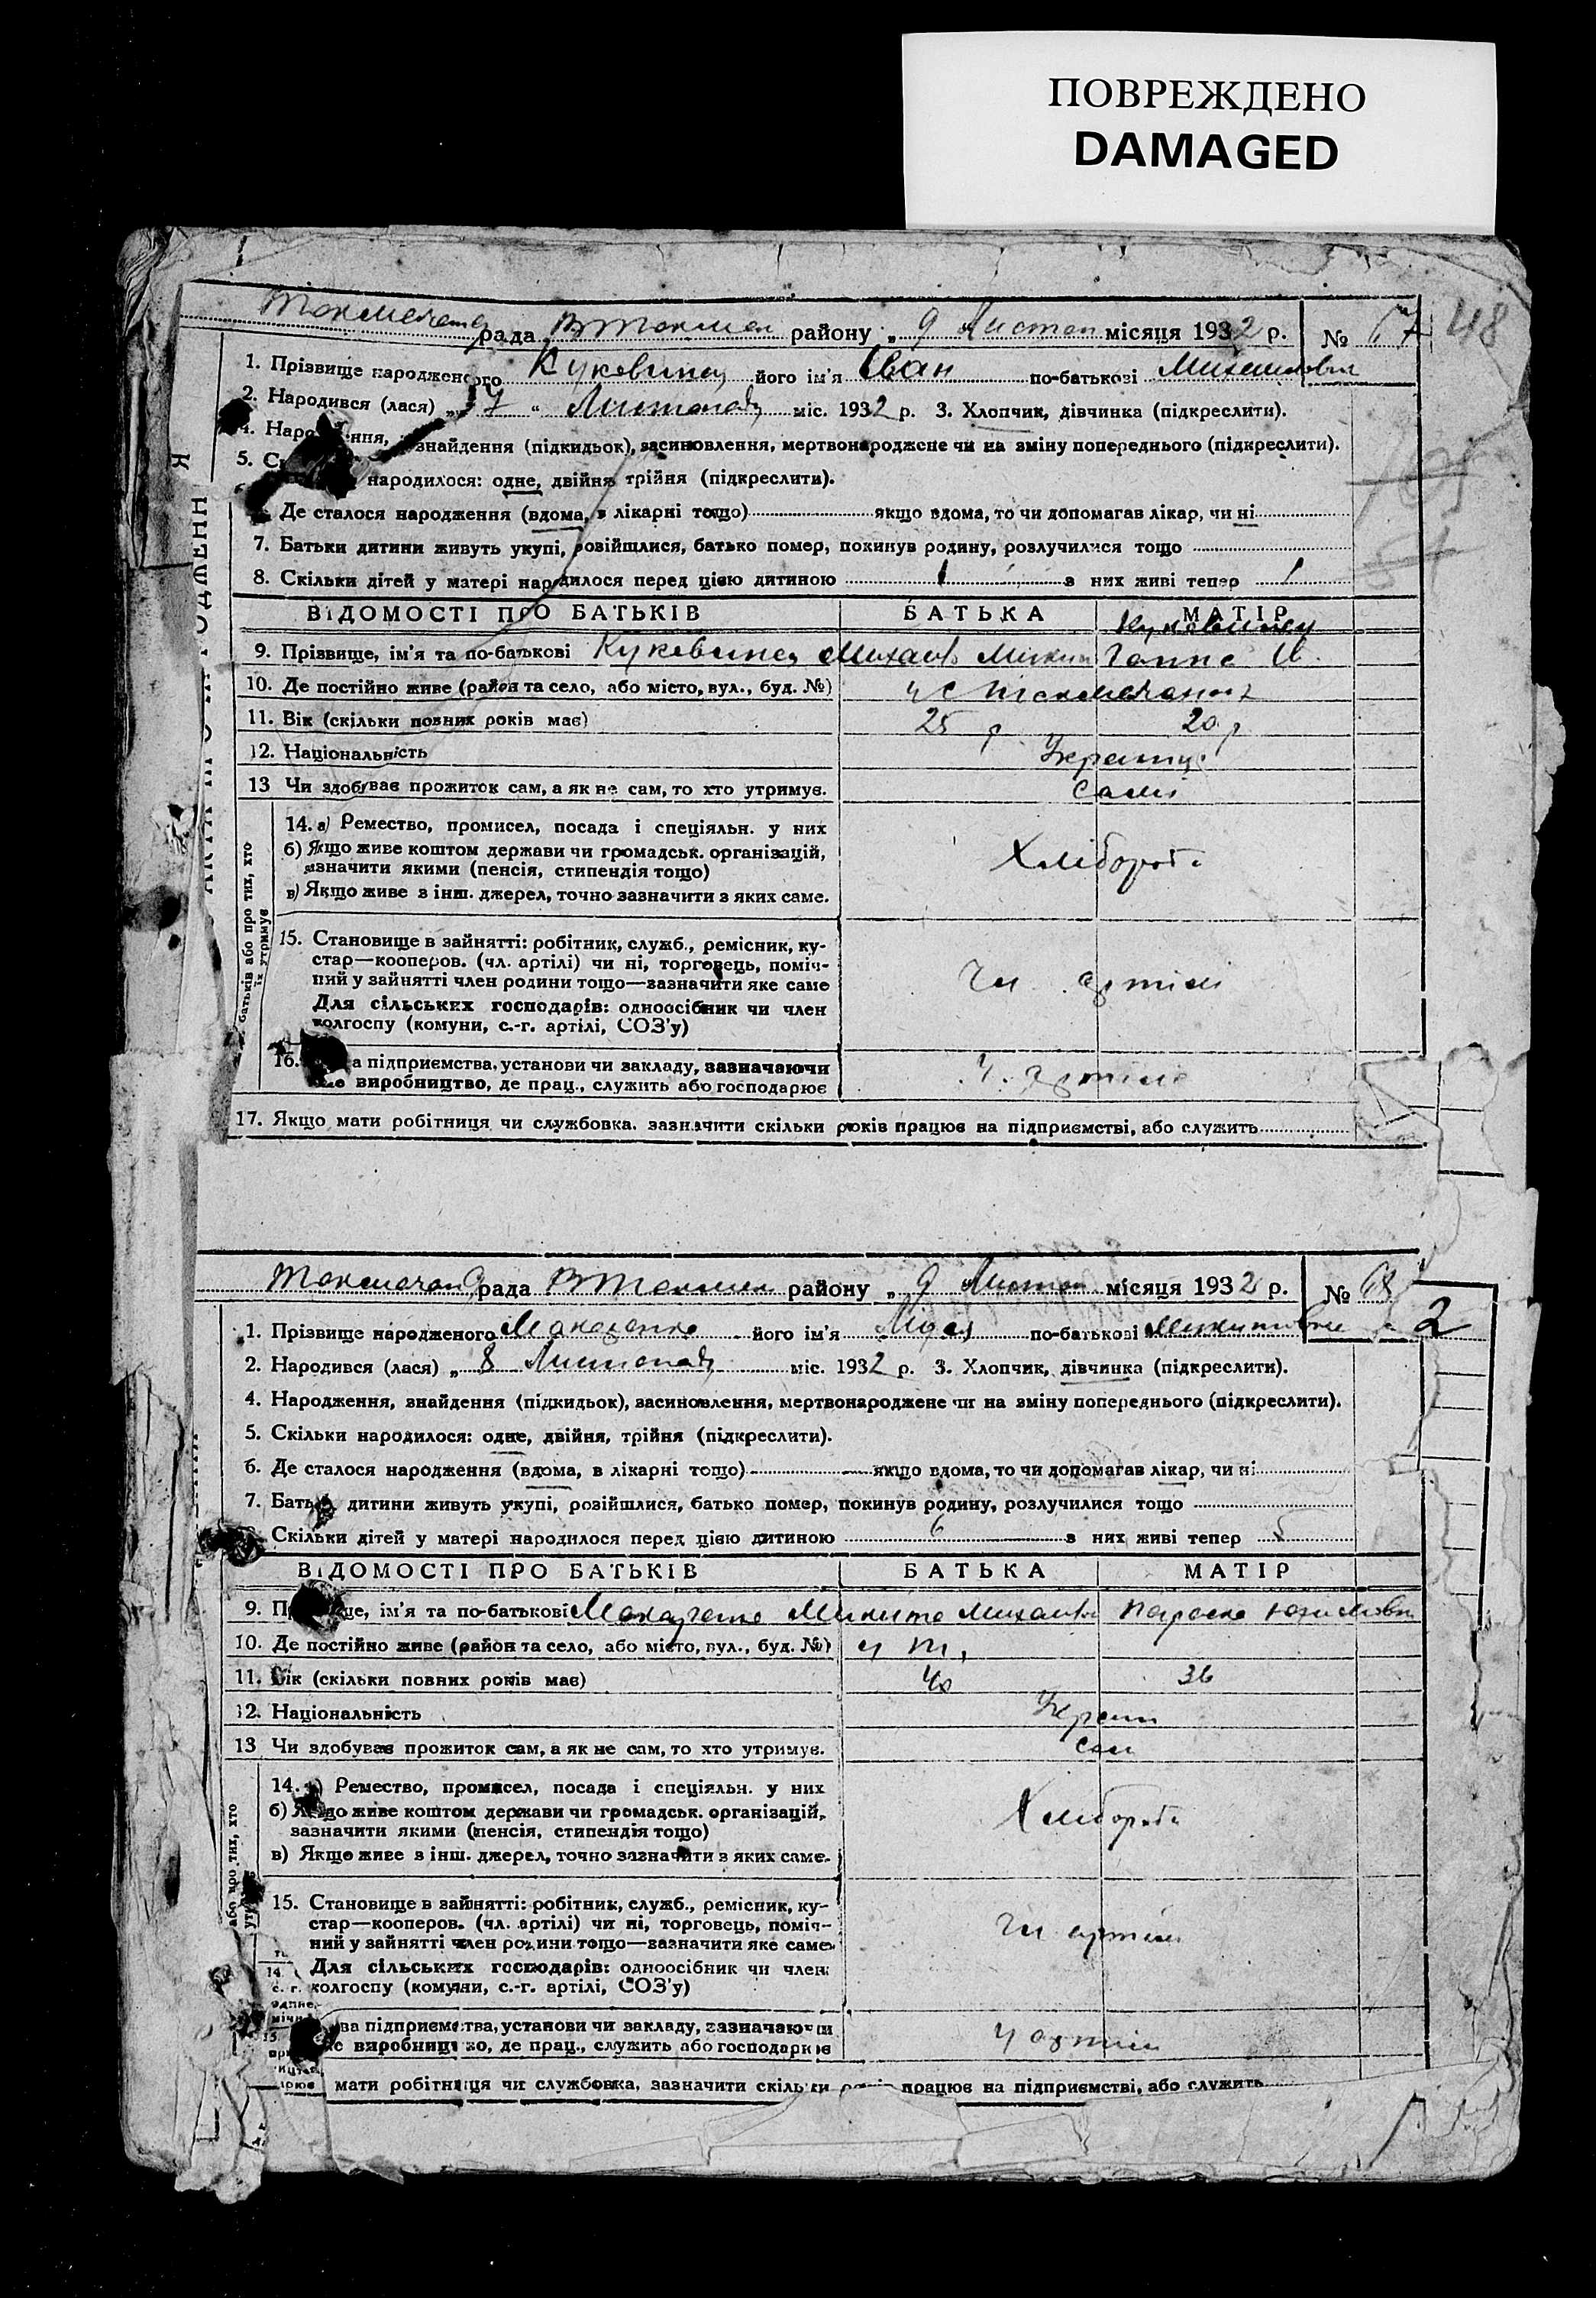 ПОВРЕЖДЕНО
DAMAGED
48
рада В Токмак району „ 9 Листоп місяця 1932 р. № 67
1. Прізвище народженого його ім'я Іван по-батькові Михайлович
2. Народився (лася) „ 7 “ Листопада міс. 1932 р. 3. Хлопчик, дівчинка (підкреслити).
знайдення (підкидьок), засиновлення, мертвонароджене чи на зміну попереднього (підкреслити).
5. народилося: одне, двійня трійня (підкреслити).
Де сталося народження (вдома, в лікарні тощо) якщо вдома, то чи допомагав лікар, чи ні
7. Батьки дитини живуть укупі, розійшлися, батько помер, покинув родину, розлучилися тощо
8. Скільки дітей у матері народилося перед цією дитиною 1 з них живі тепер 1
ВІДОМОСТІ ПРО БАТЬКІВ БАТЬКА МАТІР
9. Прізвище, ім'я та по-батькові Ганна
10. Де постійно живе (район та село, або місто, вул., буд. №)
11. Вік (скільки повних років має) 25 р 20 р
12. Національність Українці
13 Чи здобуває прожиток сам, а як не сам, то хто утримує. Самі
14. а) Ремество, промисел, посада і спеціяльн. у них
б) Якщо живе коштом держави чи громадськ. організацій,
зазначити якими (пенсія, стипендія тощо)
Хлібороби
в) Якщо живе з інш. джерел, точно зазначити з яких саме.
батьків або про тих, хто
їх утримує
15. Становище в зайнятті: робітник, служб., ремісник, ку-
стар—кооперов. (чл. артілі) чи ні, торговець, поміч-
ний у зайнятті член родини тощо—зазначити яке саме
Чл. артілі
Для сільських господарів: одноосібник чи член
колгоспу (комуни, с.-г. артілі, СОЗ'у)
16. а підприємства, установи чи закладу, зазначаючи
виробництво, де прац., служить або господарює
17. Якщо мати робітниця чи службовка, зазначити скільки років працює на підприємстві, або служить
рада В Токмак району „ 9 Листоп місяця 1932 р. № 68
2
1. Прізвище народженого Макаренко його ім'я Лідія по-батькові Микитовна
2. Народився (лася) „ 8 Листопада міс. 1932 р. 3. Хлопчик, дівчинка (підкреслити).
4. Народження, знайдення (підкидьок), засиновлення, мертвонароджене чи на зміну попереднього (підкреслити).
5. Скільки народилося: одне, двійня, трійня (підкреслити).
6. Де сталося народження (вдома, в лікарні тощо) якщо вдома, то чи допомагав лікар, чи ні
7. Батьки дитини живуть укупі, розійшлися, батько помер, покинув родину, розлучилися тощо
Скільки дітей у матері народилося перед цією дитиною 6 з них живі тепер 5
ВІДОМОСТІ ПРО БАТЬКІВ БАТЬКА МАТІР
9. ім'я та по-батькові Макаренко Микита Михайлов Параска Юхимовна
10. Де постійно живе (район та село, або місто, вул., буд. №)
11. Вік (скільки повних років має) 40 36
12. Національність Україн
13 Чи здобуває прожиток сам, а як не сам, то хто утримує. Сам
14. Ремество, промисел, посада і спеціяльн. у них
б) Якщо живе коштом держави чи громадськ. організацій,
зазначити якими (пенсія, стипендія тощо)
Хлібороби
в) Якщо живе з інш. джерел, точно зазначити з яких саме.
або про тих, хто
15. Становище в зайнятті: робітник, служб., ремісник, ку-
стар—кооперов. (чл. артілі) чи ні, торговець, поміч-
ний у зайнятті член родини тощо—зазначити яке саме
Чл артілі
Для сільських господарів: одноосібник чи член
колгоспу (комуни, с.-г. артілі, СОЗ'у)
ва підприємства, установи чи закладу, зазначаючи
виробництво, де прац., служить або господарює
мати робітниця чи службовка, зазначити скільки років працює на підприємстві, або служить